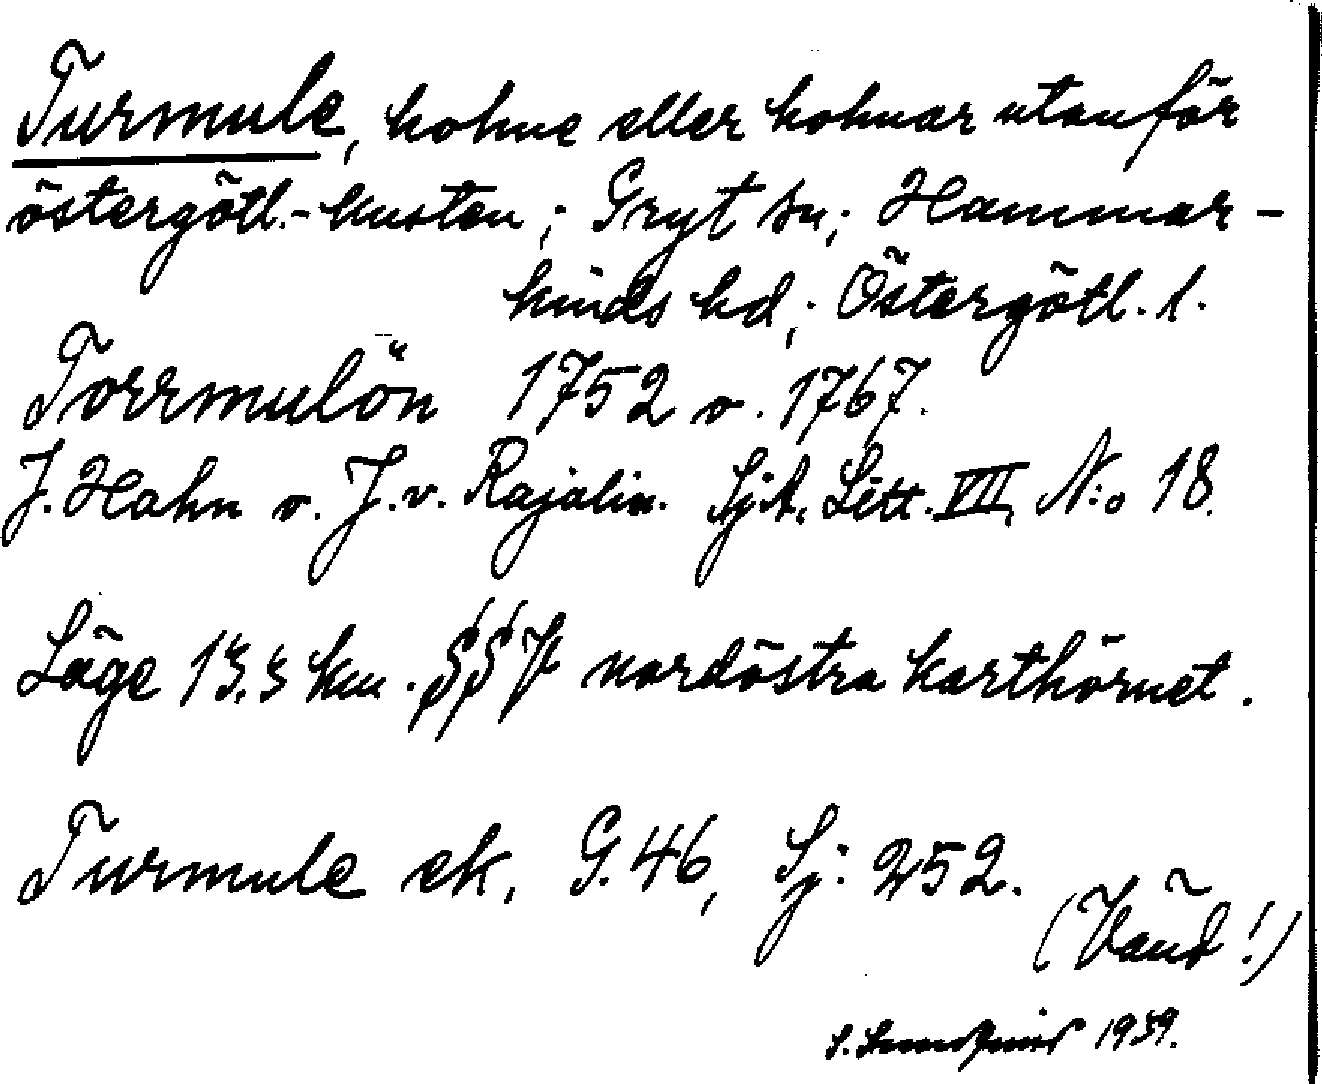 Turmule, kohne eller kohnar utanför
östergötl.-kusten; Gryt sn; Hammar-
kinds hd; Östergötl. l.
Torrmulön 1752 o. 1767.
J. Hahn o. J. v. Rajalin. Sjk. Litt. VII, N:o 18.
Läge 13.3 km. §§ nordöstra karthörnet.
Turmule ek, G. 46, Sj: 252.
(Vänd!)
S. 1939.